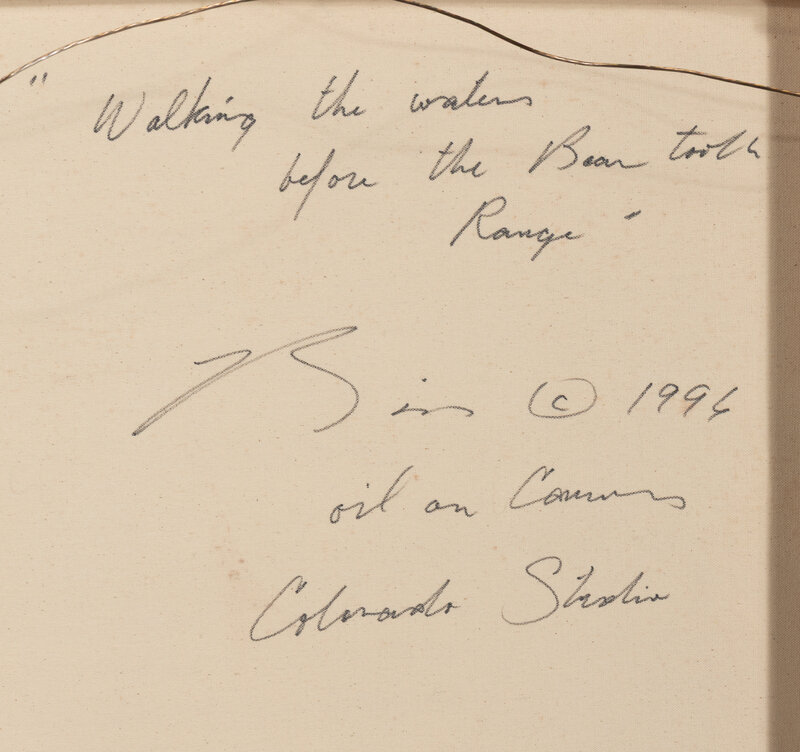 " Walking the waters
before the Bear tooth
Range "
© 1996
oil on Canvas
Colorado Studio